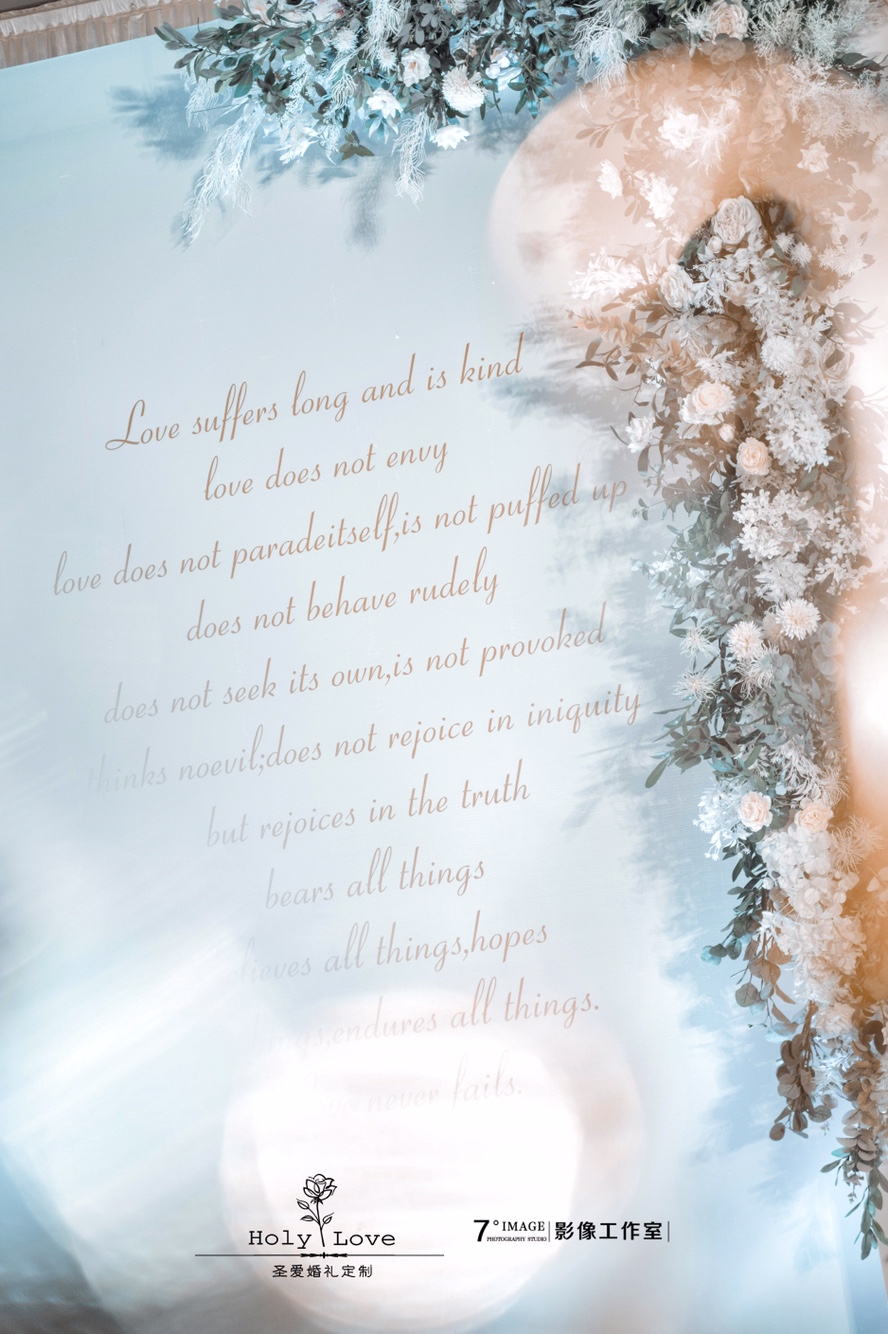 Love suffers long and is kind
love does not envy
love does not paradeitself,is not puffed up
does not behave rudely
does not seek its own,is not provoked
thinks noevil;does not rejoice in iniquity
but rejoices in the truth
bears all things
all things,hopes
endures all things.
never fails.
Holy Love
圣爱婚礼定制
7° IMAGE
PHOTOGRAPHY STUDIO
影像工作室